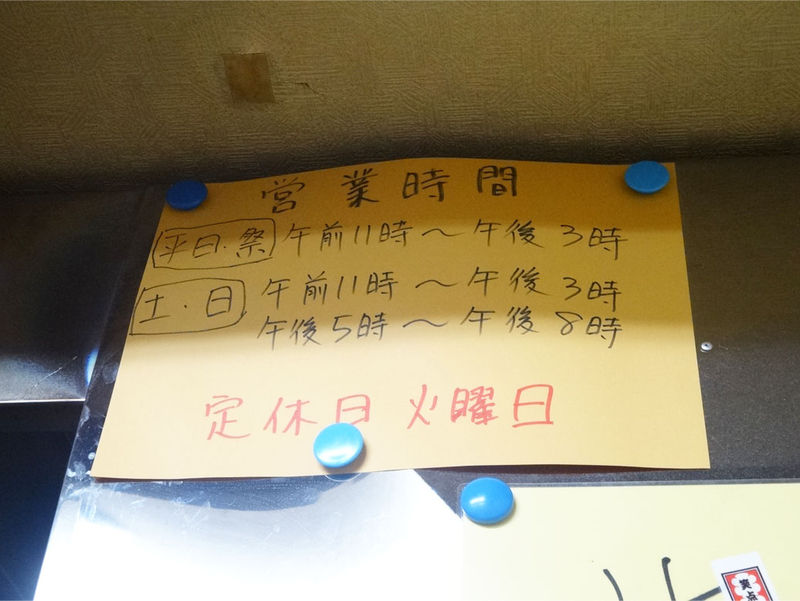 営業時間
平日・祭 午前11時〜午後3時
土・日 午前11時〜午後3時
午後5時〜午後8時
定休日 火曜日
笑点